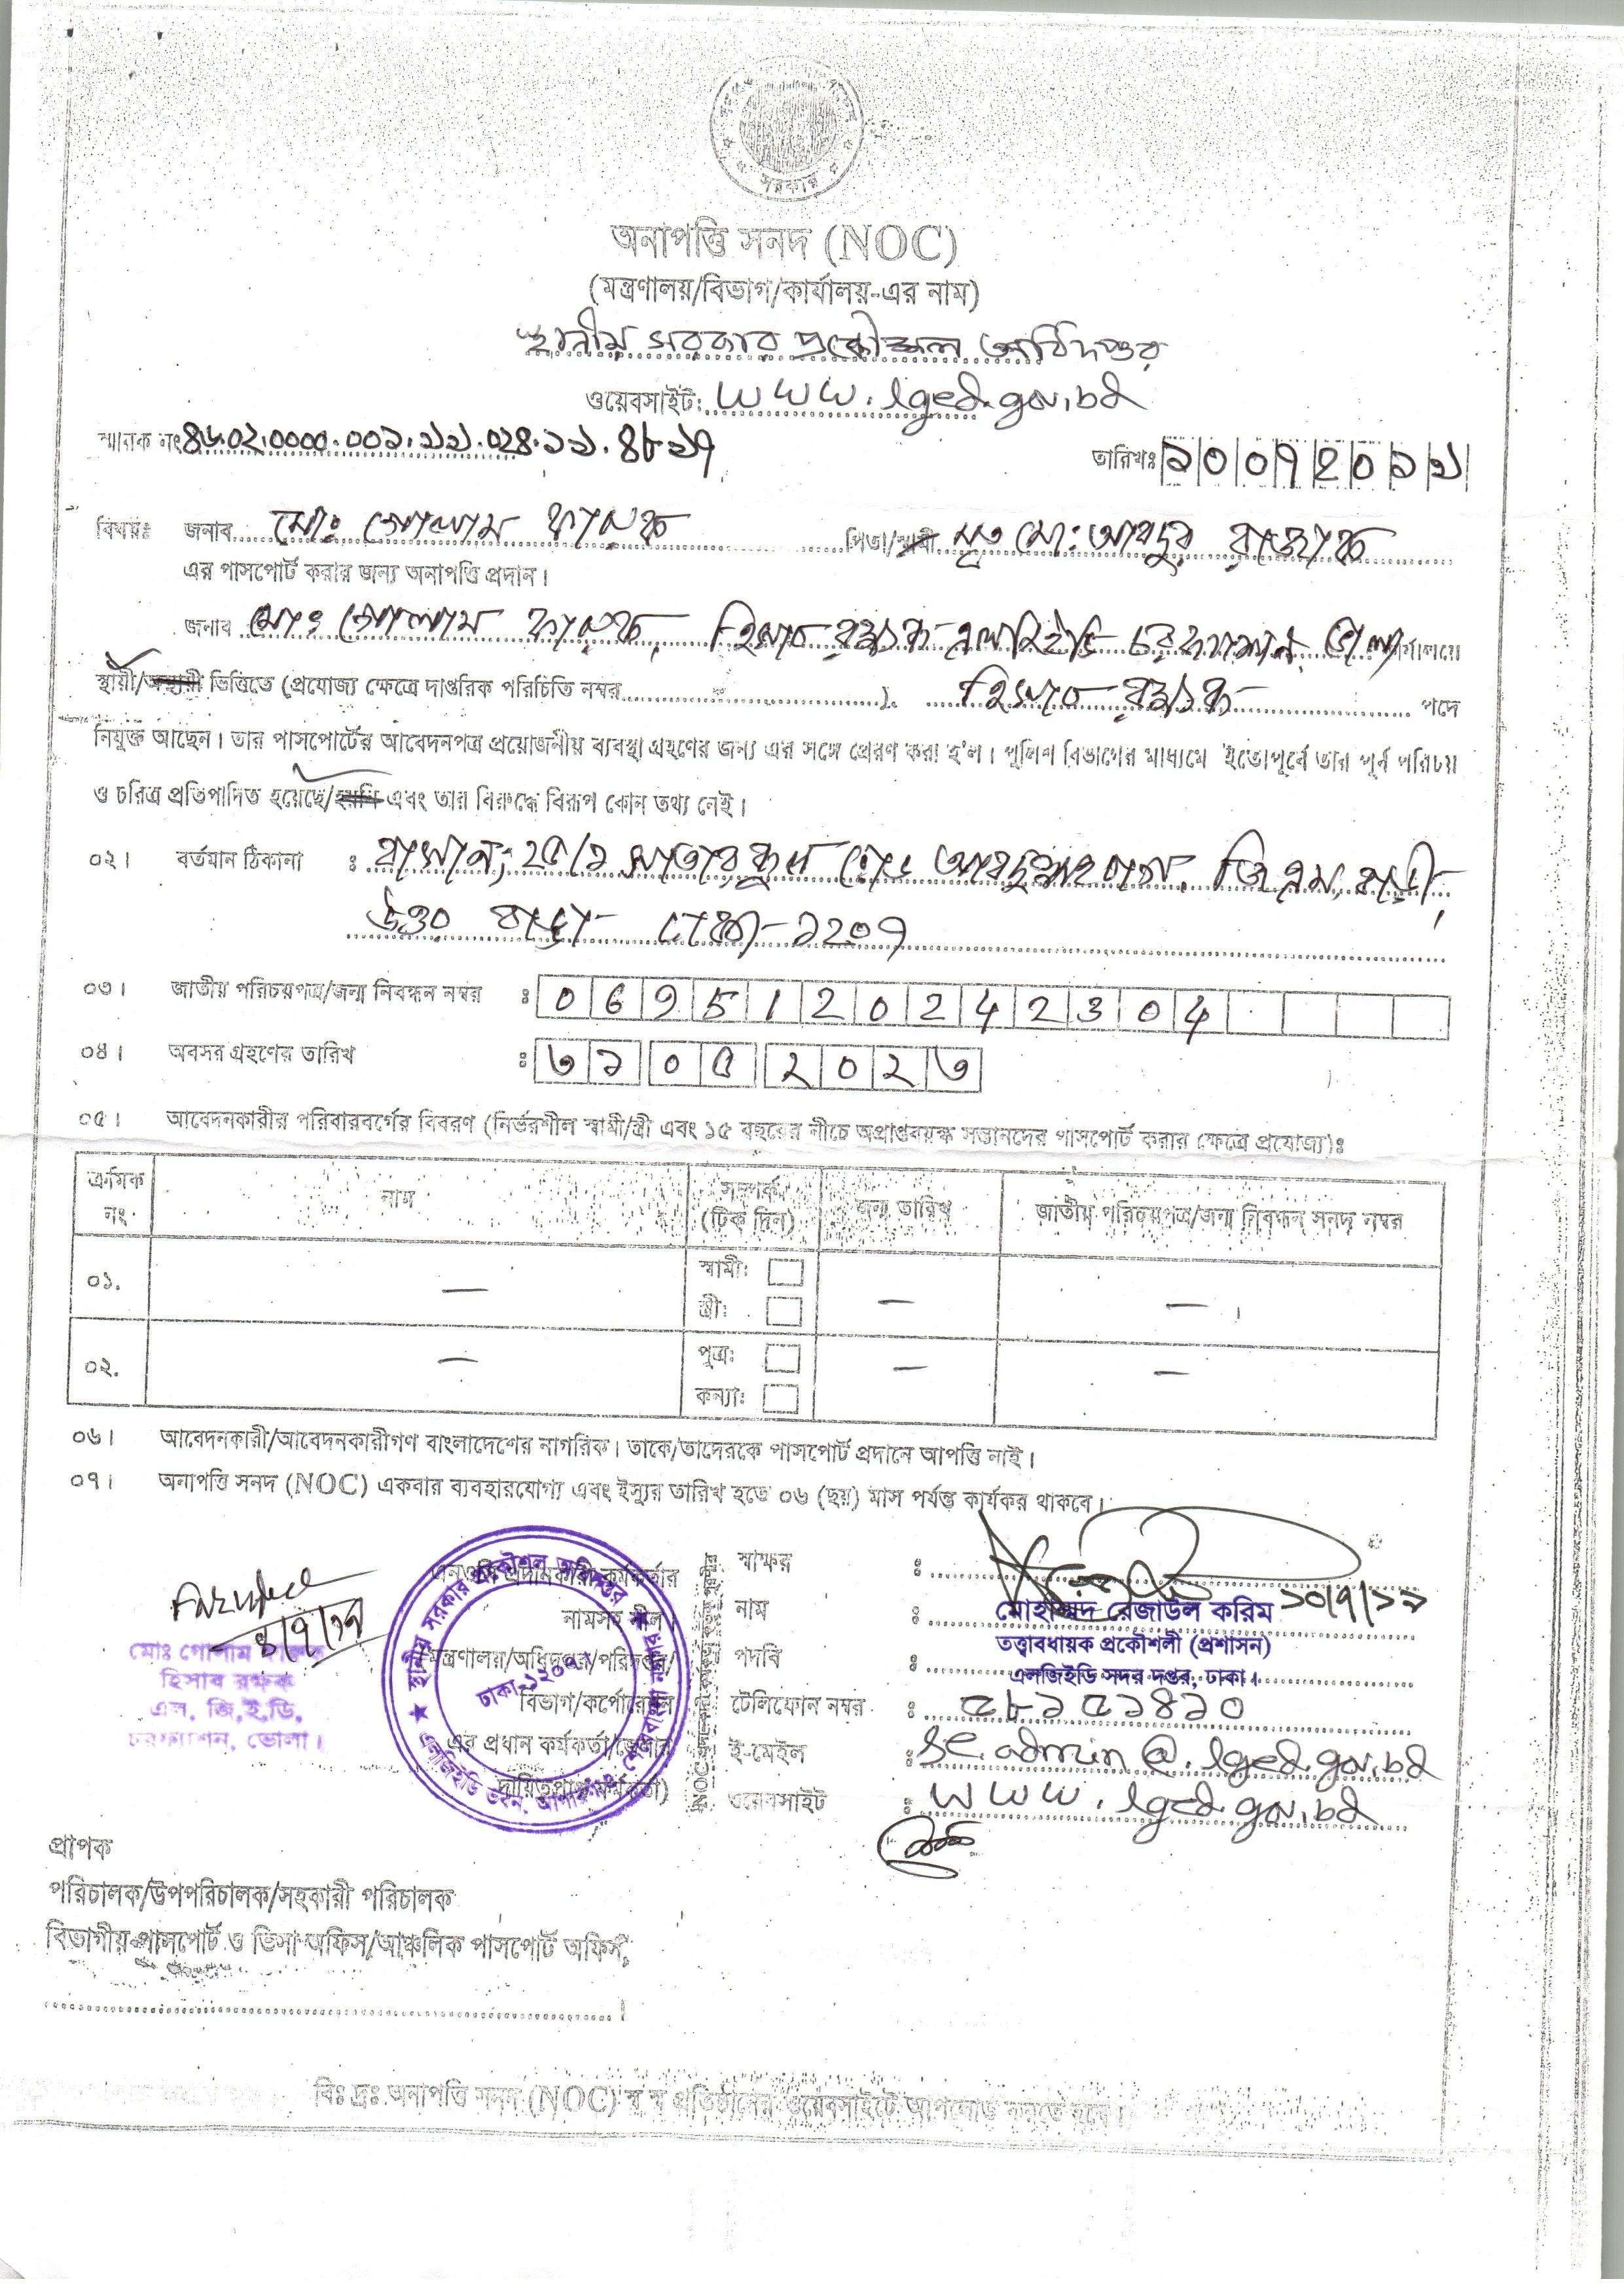 সরকার
অনাপত্তি সনদ (NOC)
(মন্ত্রণালয়/বিভাগ/কার্যালয়-এর নাম)
স্থানীয় সরকার প্রকৌশল অধিদপ্তর
ওয়েবসাইট: www.lged.gov.bd
স্মারক নং ৪৬.০২.০০০০.০০১.১১১.০২৪.১১.৪৮১৭
তারিখঃ ১০০৭২০১১
বিষয়ঃ জনাব মোঃ গোলাম ফারুক পিতা/স্বামী মৃত মো: আবদুর রাজ্জাক
এর পাসপোর্ট করার জন্য অনাপত্তি প্রদান।
জনাব মোঃ গোলাম ফারুক, হিসাব রক্ষক এলজিইডি চরফ্যাশন, ভোলা কার্যালয়ে
স্থায়ী/অস্থায়ী ভিত্তিতে (প্রযোজ্য ক্ষেত্রে দাপ্তরিক পরিচিতি নম্বর ) হিসাব রক্ষক পদে
নিযুক্ত আছেন। তার পাসপোর্টের আবেদনপত্র প্রয়োজনীয় ব্যবস্থা গ্রহণের জন্য এর সঙ্গে প্রেরণ করা হ'ল। পুলিশ বিভাগের মাধ্যমে ইতোপূর্বে তার পূর্ব পরিচয়
ও চরিত্র প্রতিপাদিত হয়েছে/হয়নি এবং তার বিরুদ্ধে বিরূপ কোন তথ্য নেই।
০২। বর্তমান ঠিকানা : ২৫/১ সাতারকুল রোড আবদুল্লাহবাগ, জি এম বাড়ী,
উত্তর বাড্ডা ঢাকা-১২০৭
০৩। জাতীয় পরিচয়পত্র/জন্ম নিবন্ধন নম্বর : 0695120242304
০৪। অবসর গ্রহণের তারিখ : ৩১ ০৫ ২০২৩
০৫। আবেদনকারীর পরিবারবর্গের বিবরণ (নির্ভরশীল স্বামী/স্ত্রী এবং ১৫ বছরের নীচে অপ্রাপ্তবয়স্ক সন্তানদের পাসপোর্ট করার ক্ষেত্রে প্রযোজ্য)ঃ
ক্রমিক নং নাম সম্পর্ক (টিক দিন) জন্ম তারিখ জাতীয় পরিচয়পত্র/জন্ম নিবন্ধন সনদ নম্বর
০১. — স্বামী: — —
স্ত্রী:
০২. — পুত্র: — —
কন্যা:
০৬। আবেদনকারী/আবেদনকারীগণ বাংলাদেশের নাগরিক। তাকে/তাদেরকে পাসপোর্ট প্রদানে আপত্তি নাই।
০৭। অনাপত্তি সনদ (NOC) একবার ব্যবহারযোগ্য এবং ইস্যুর তারিখ হতে ০৬ (ছয়) মাস পর্যন্ত কার্যকর থাকবে।
মোঃ গোলাম ফারুক
হিসাব রক্ষক
এল, জি,ই,ডি,
চরফ্যাশন, ভোলা।
এনওসি প্রদানকারী কর্মকর্তার
নামসহ সীল।
(মন্ত্রণালয়/অধিদপ্তর/পরিদপ্তর/
বিভাগ/কর্পোরেশন
এর প্রধান কর্মকর্তা/জেলার
দায়িত্বপ্রাপ্ত কর্মকর্তা)
স্থানীয় সরকার প্রকৌশল অধিদপ্তর
ঢাকা-১২০৭
স্বাক্ষর : ১০/৭/১১
নাম : মোহাম্মদ রেজাউল করিম
পদবি : তত্ত্বাবধায়ক প্রকৌশলী (প্রশাসন)
এলজিইডি সদর দপ্তর, ঢাকা।
টেলিফোন নম্বর : ৫৮১৫১৪১০
ই-মেইল : se.admin@.lged.gov.bd
ওয়েবসাইট : www.lged.gov.bd
প্রাপক
পরিচালক/উপপরিচালক/সহকারী পরিচালক
বিভাগীয় পাসপোর্ট ও ভিসা অফিস/আঞ্চলিক পাসপোর্ট অফিস,
বিঃ দ্রঃ অনাপত্তি সনদ (NOC) স্ব স্ব প্রতিষ্ঠানের ওয়েবসাইটে আপলোড করতে হবে।